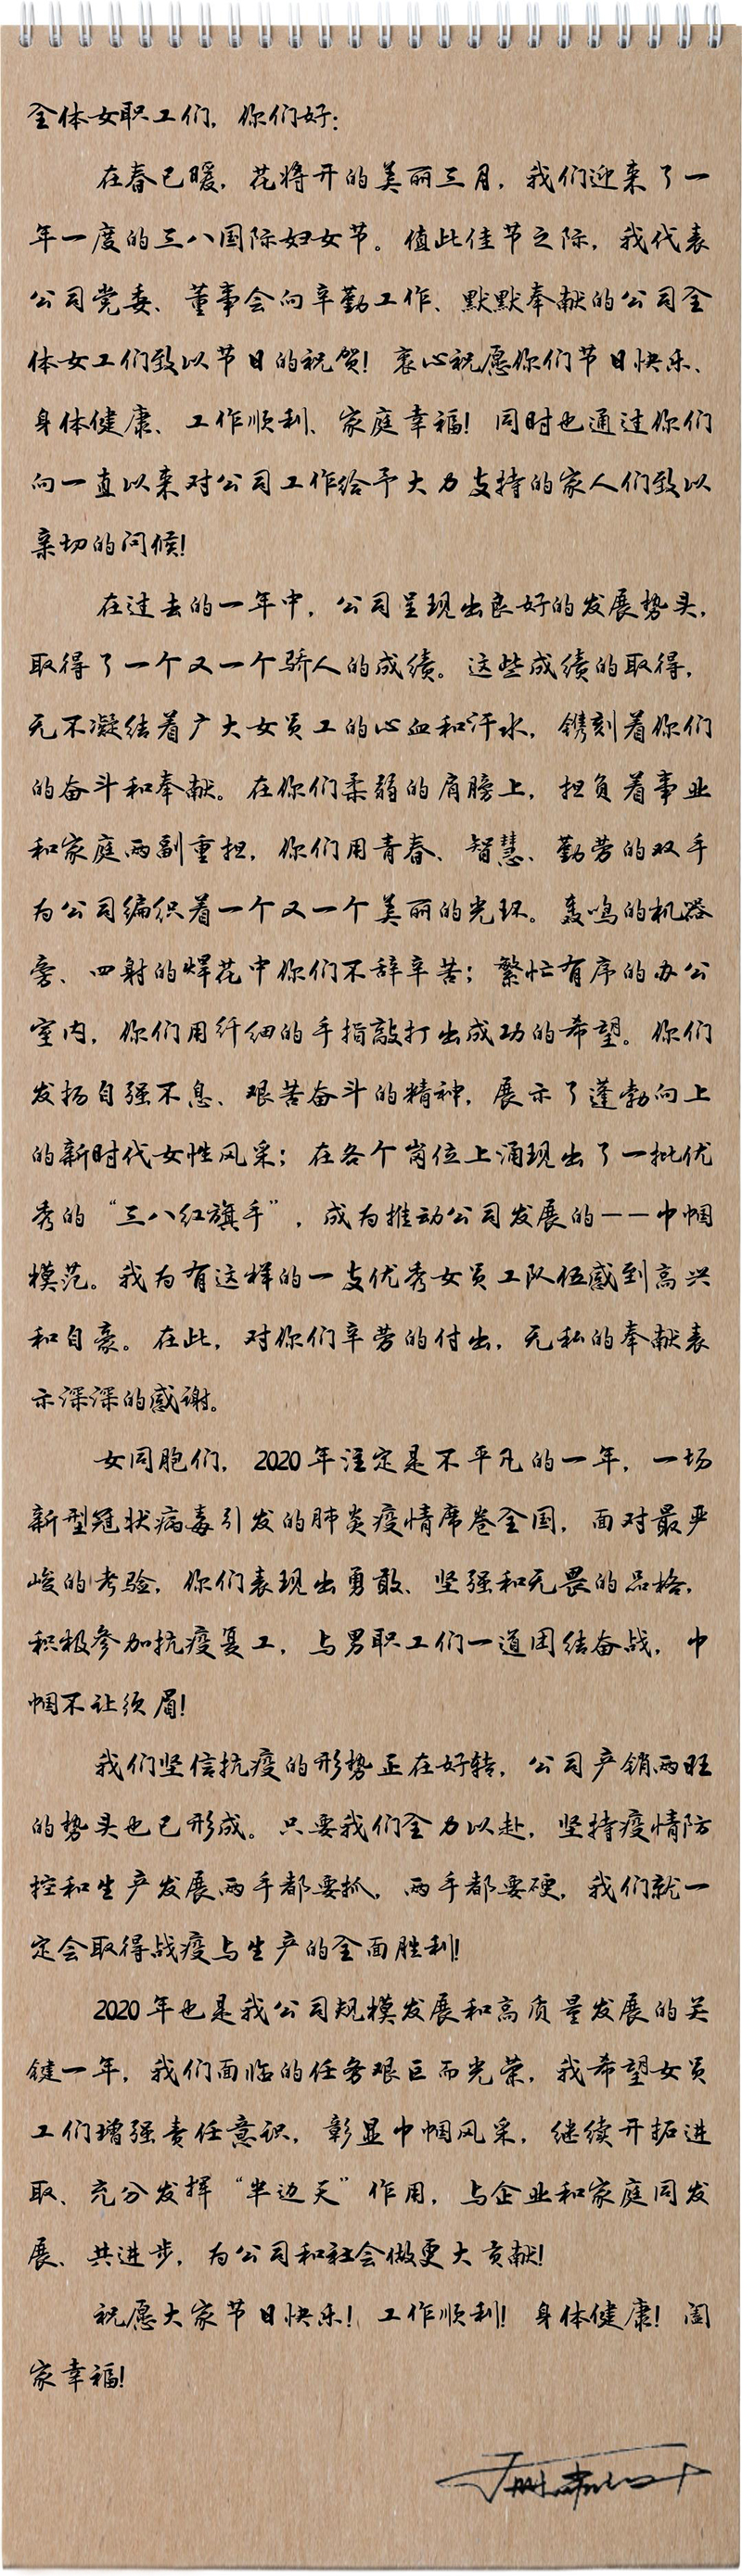 全体女职工们，你们好：
在春已暖，花将开的美丽三月，我们迎来了一
年一度的三八国际妇女节。值此佳节之际，我代表
公司党委、董事会向辛勤工作、默默奉献的公司全
体女工们致以节日的祝贺！衷心祝愿你们节日快乐、
身体健康、工作顺利、家庭幸福！同时也通过你们
向一直以来对公司工作给予大力支持的家人们致以
亲切的问候！
在过去的一年中，公司呈现出良好的发展势头，
取得了一个又一个骄人的成绩。这些成绩的取得，
无不凝结着广大女员工的心血和汗水，镌刻着你们
的奋斗和奉献。在你们柔弱的肩膀上，担负着事业
和家庭两副重担，你们用青春、智慧、勤劳的双手
为公司编织着一个又一个美丽的光环。轰鸣的机器
旁、四射的焊花中你们不辞辛苦；繁忙有序的办公
室内，你们用纤细的手指敲打出成功的希望。你们
发扬自强不息、艰苦奋斗的精神，展示了蓬勃向上
的新时代女性风采；在各个岗位上涌现出了一批优
秀的“三八红旗手”，成为推动公司发展的——巾帼
模范。我为有这样的一支优秀女员工队伍感到高兴
和自豪。在此，对你们辛劳的付出，无私的奉献表
示深深的感谢。
女同胞们，2020年注定是不平凡的一年，一场
新型冠状病毒引发的肺炎疫情席卷全国，面对最严
峻的考验，你们表现出勇敢、坚强和无畏的品格，
积极参加抗疫复工，与男职工们一道团结奋战，巾
帼不让须眉！
我们坚信抗疫的形势正在好转，公司产销两旺
的势头也已形成。只要我们全力以赴，坚持疫情防
控和生产发展两手都要抓，两手都要硬，我们就一
定会取得战疫与生产的全面胜利！
2020年也是我公司规模发展和高质量发展的关
键一年，我们面临的任务艰巨而光荣，我希望女员
工们增强责任意识，彰显巾帼风采，继续开拓进
取、充分发挥“半边天”作用，与企业和家庭同发
展、共进步，为公司和社会做更大贡献！
祝愿大家节日快乐！工作顺利！身体健康！阖
家幸福！